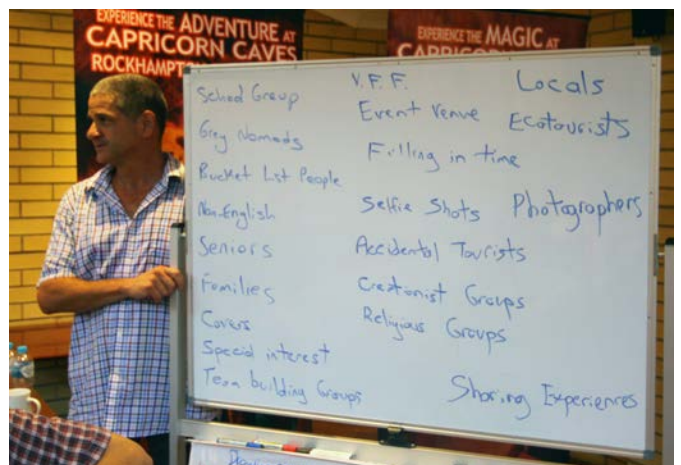 EXPERIENCE THE ADVENTURE AT
CAPRICORN CAVES
EXPERIENCE THE MAGIC AT
School Group
Grey Nomads
Bucket List People
Non-English
Seniors
Families
Cavers
Special interest
Team building Groups
V.F.F.
Event Venue
Filling in time
Selfie Shots
Accidental Tourists
Creationist Groups
Religious Groups
Locals
Ecotourists
Photographers
Sharing Experiences